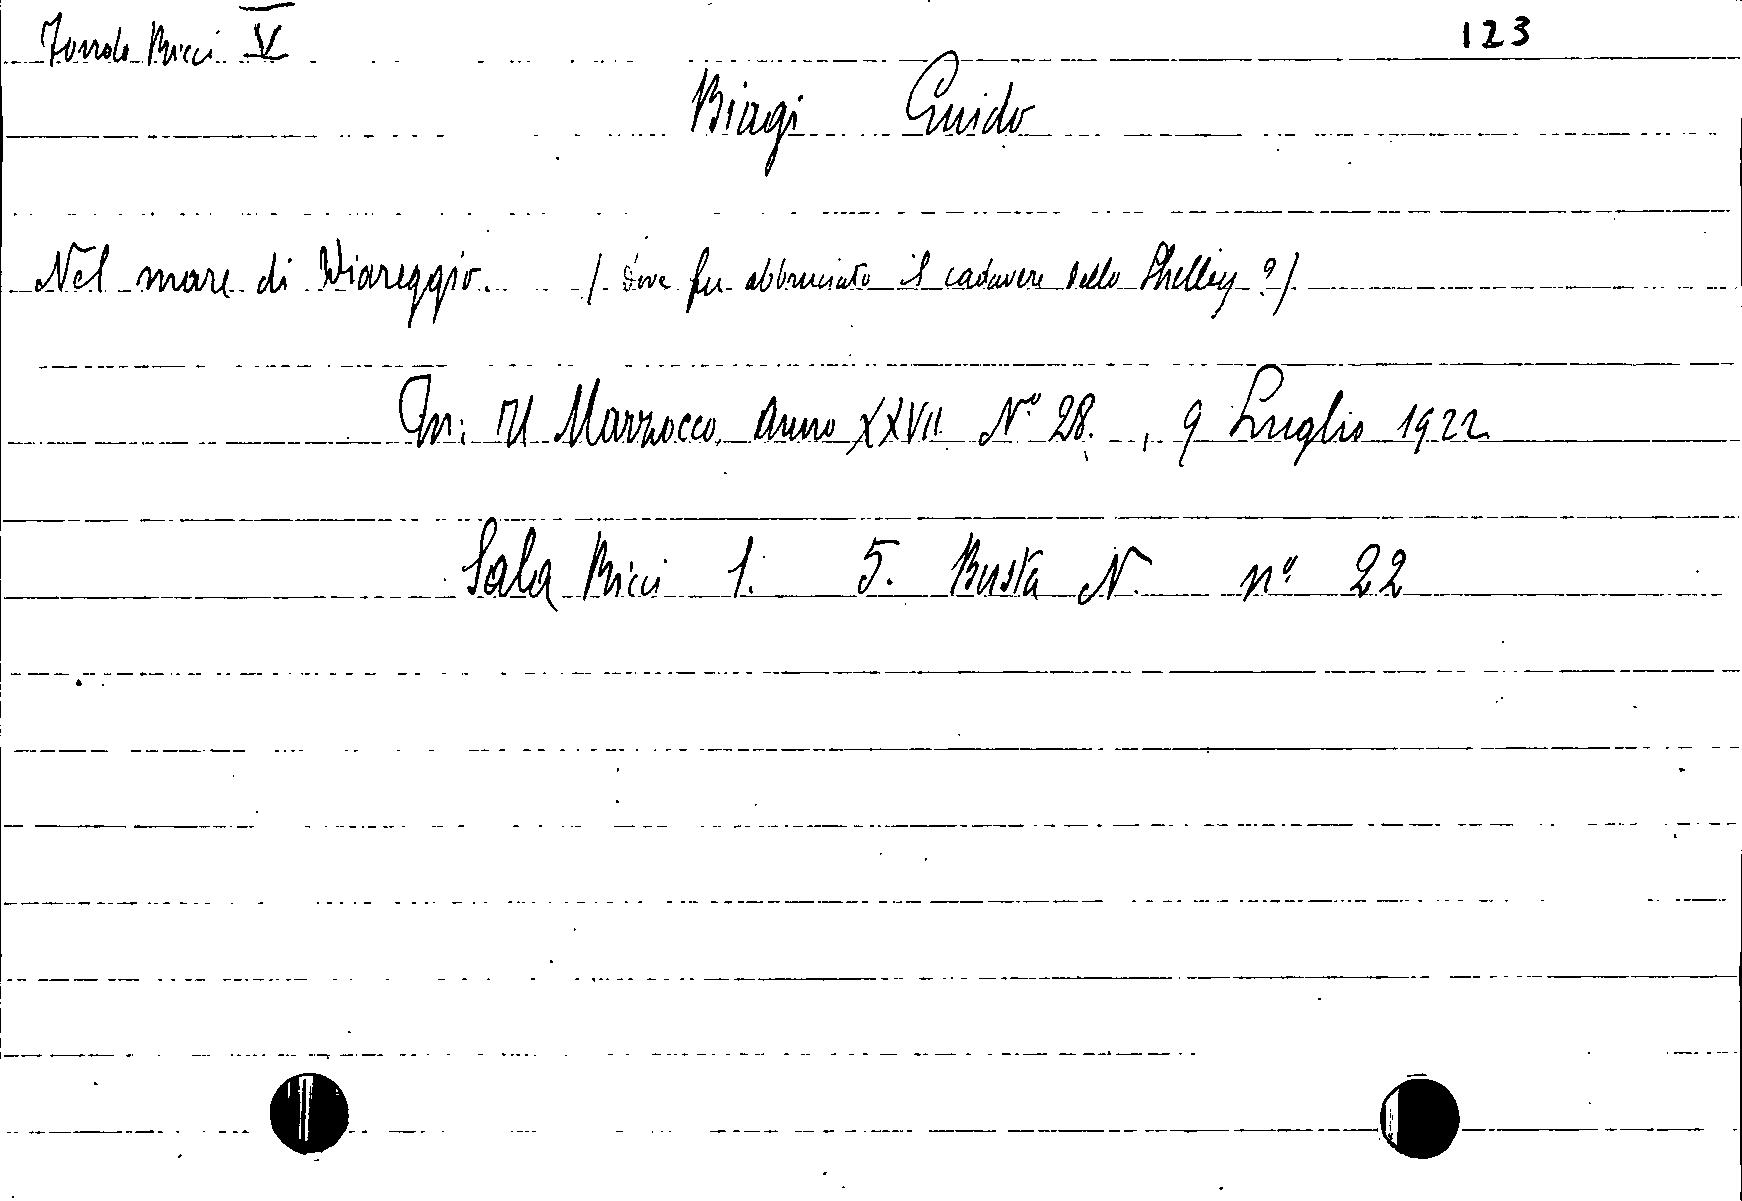 Fondo Ricci V 123
Biagi Guido
Nel mare di Viareggio. (dove fu abbruciato il cadavere dello Shelley?)
In: Il Marzocco. Anno XXVII N° 28. , 9 Luglio 1922
Sala Ricci 1. 5. Busta N. n° 22